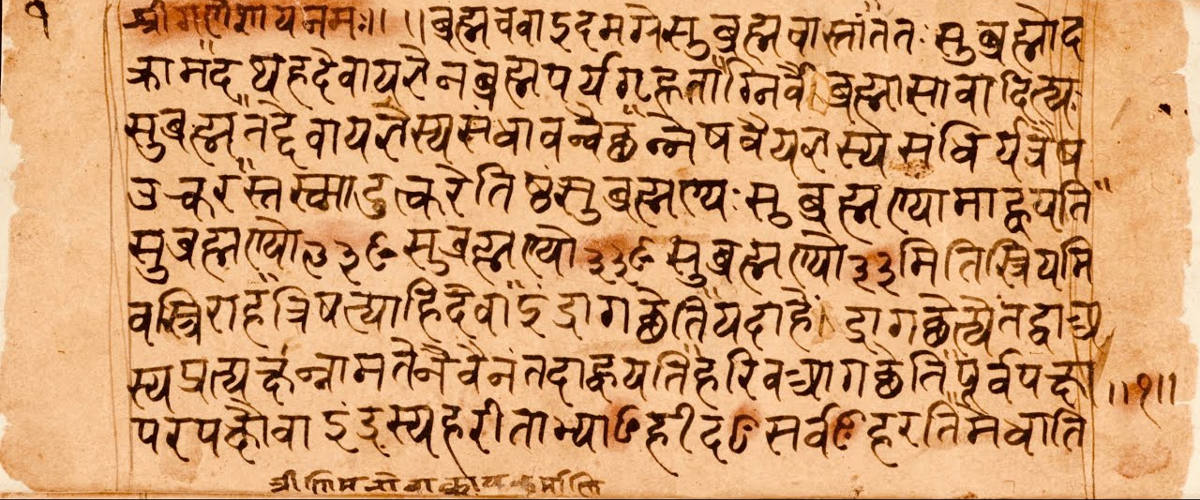 १
श्रीगणेशायनमः॥ ॥ब्रह्मचवाइदमग्रेसुब्रह्मचास्तांततःसुब्रह्मोद
क्रामदथहदेवायज्ञेनब्रह्मपर्यगृह्णताग्निर्वैब्रह्मासावादित्यः
सुब्रह्मतद्देवायज्ञस्यसंधावन्वैच्छन्नेषवैयज्ञस्यसंधिर्यत्रैष
उत्करस्तस्मादुत्करेतिष्ठंसुब्रह्मण्यःसुब्रह्मण्यामाह्वयति
सुब्रह्मण्यो३३ꣳसुब्रह्मण्यो३३ꣳसुब्रह्मण्यो३३मितिस्त्रियमि
वत्रिराहत्रिषत्याहिदेवाइंद्रागच्छेतियदाहेंद्रागच्छेत्येतद्वाअ
स्यप्रत्यक्षन्नामतेनैवैनंतदाह्वयतिहरिवआगच्छेतिपूर्वपक्षा
॥१॥
परपक्षौवाइंद्रस्यहरीताभ्याꣳहीदꣳसर्वꣳहरतिमेधाति